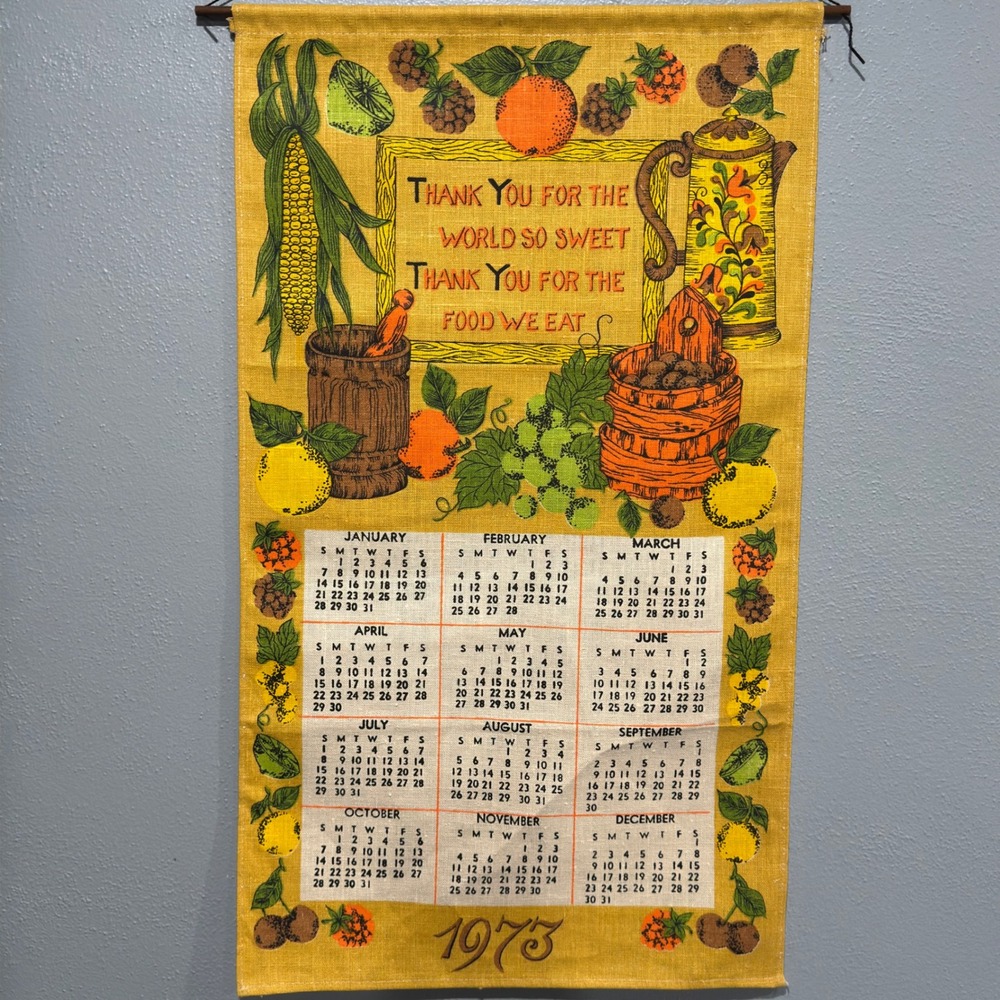 THANK YOU FOR THE
WORLD SO SWEET
THANK YOU FOR THE
FOOD WE EAT
JANUARY
S M T W T F S
1 2 3 4 5 6
7 8 9 10 11 12 13
14 15 16 17 18 19 20
21 22 23 24 25 26 27
28 29 30 31
FEBRUARY
S M T W T F S
1 2 3
4 5 6 7 8 9 10
11 12 13 14 15 16 17
18 19 20 21 22 23 24
25 26 27 28
MARCH
S M T W T F S
1 2 3
4 5 6 7 8 9 10
11 12 13 14 15 16 17
18 19 20 21 22 23 24
25 26 27 28 29 30 31
APRIL
S M T W T F S
1 2 3 4 5 6 7
8 9 10 11 12 13 14
15 16 17 18 19 20 21
22 23 24 25 26 27 28
29 30
MAY
S M T W T F S
1 2 3 4 5
6 7 8 9 10 11 12
13 14 15 16 17 18 19
20 21 22 23 24 25 26
27 28 29 30 31
JUNE
S M T W T F S
1 2
3 4 5 6 7 8 9
10 11 12 13 14 15 16
17 18 19 20 21 22 23
24 25 26 27 28 29 30
JULY
S M T W T F S
1 2 3 4 5 6 7
8 9 10 11 12 13 14
15 16 17 18 19 20 21
22 23 24 25 26 27 28
29 30 31
AUGUST
S M T W T F S
1 2 3 4
5 6 7 8 9 10 11
12 13 14 15 16 17 18
19 20 21 22 23 24 25
26 27 28 29 30 31
SEPTEMBER
S M T W T F S
1
2 3 4 5 6 7 8
9 10 11 12 13 14 15
16 17 18 19 20 21 22
23 24 25 26 27 28 29
30
OCTOBER
S M T W T F S
1 2 3 4 5 6
7 8 9 10 11 12 13
14 15 16 17 18 19 20
21 22 23 24 25 26 27
28 29 30 31
NOVEMBER
S M T W T F S
1 2 3
4 5 6 7 8 9 10
11 12 13 14 15 16 17
18 19 20 21 22 23 24
25 26 27 28 29 30
DECEMBER
S M T W T F S
1
2 3 4 5 6 7 8
9 10 11 12 13 14 15
16 17 18 19 20 21 22
23 24 25 26 27 28 29
30 31
1973